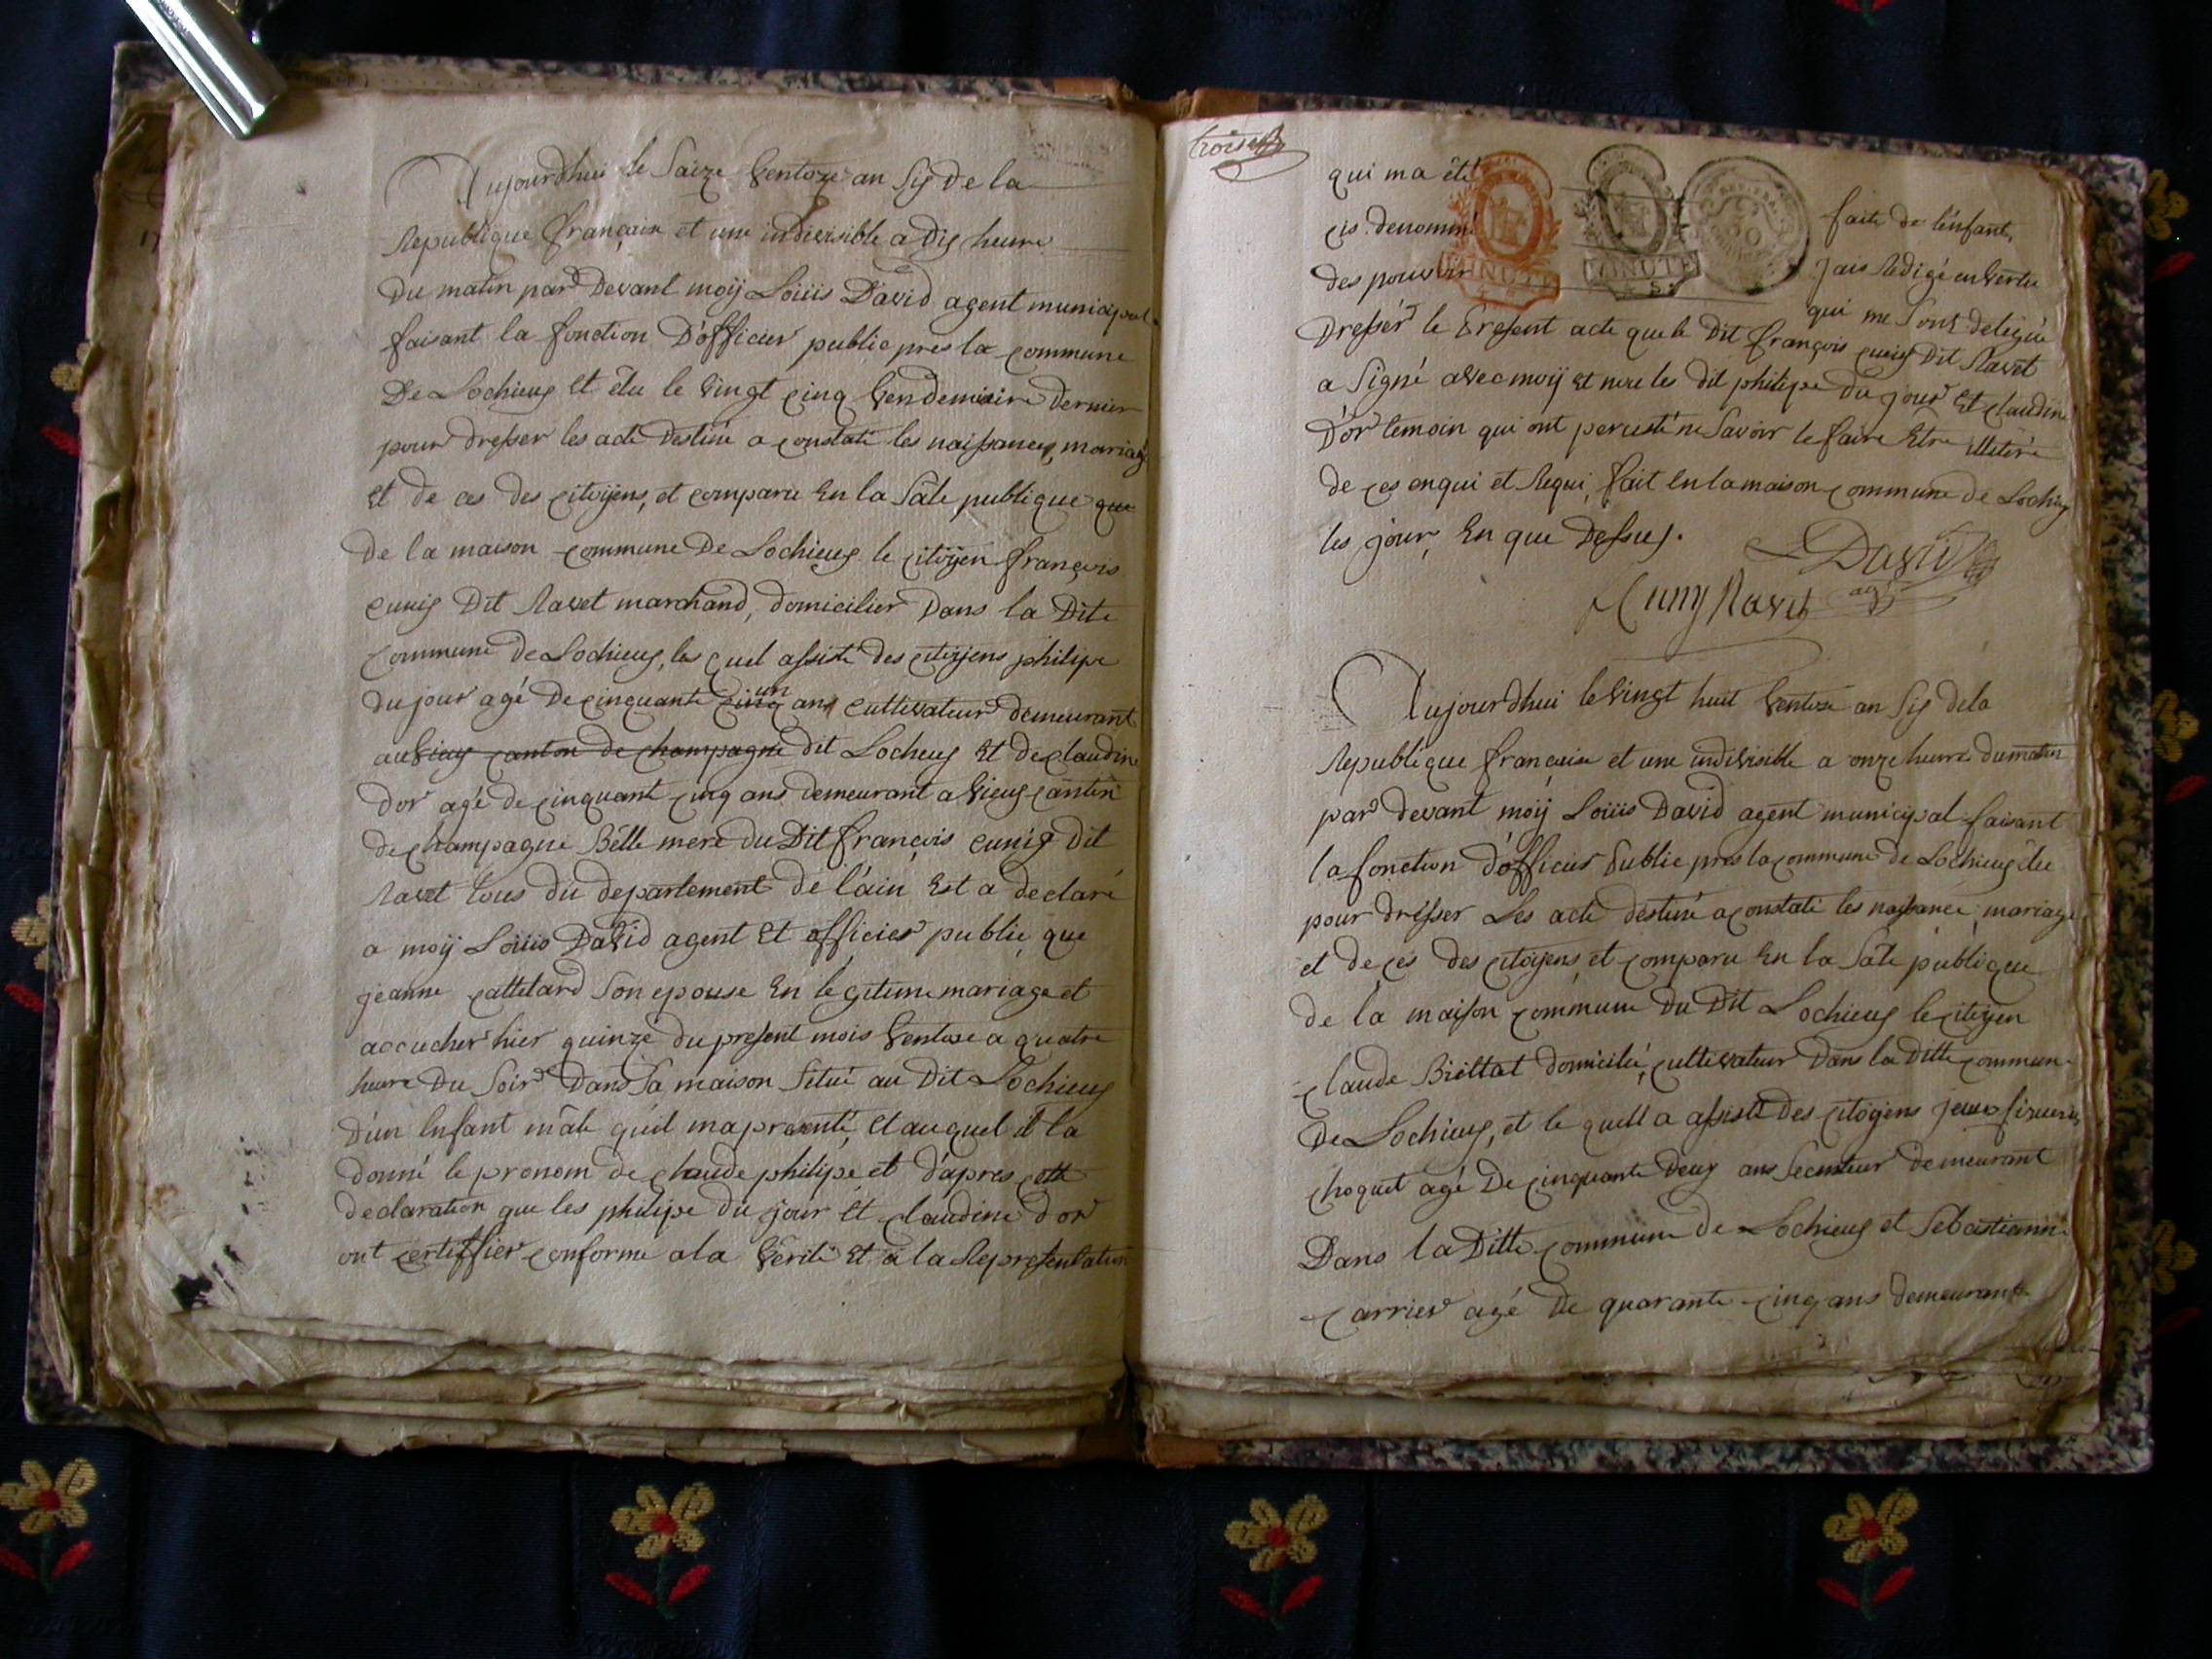 Aujourdhui le Saize Ventoze an Six de la
Republique francaise et une indivisible a dix heure
Du matin par Devant moÿ Loüis David agent municipal
faisant la fonction D'officier public pres la commune
De Lochieux et élu le vingt cinq vendemiaire dernier
pour dresser les acte destiné a constaté les naissances, mariage
et de ces des citoÿens, et comparu En la Sâle publique que
De la maison commune De Lochieux le citoÿen françois
cunix Dit Ravet marchand, domicilier Dans la Dite
commune de Lochieux, les quel assisté des citoyens philipe
du jour agé De cinquante cinq un ans cultivateur demeurant
au vieux canton de champagne dit Locheux Et de claudine
dor agé de cinquante cinq ans demeurant a vieux canton
de champagne Bélle mere du Dit françois cunix dit
Ravet tous du departement de l'ain Est a declaré
a moÿ Loüis David agent Et officier public que
jeanne cattelard Son epouse En legitime mariage et
accucher hier quinze du present mois Ventose a quatre
heure Du Soir Dans Sa maison Situé au Dit Lochieux
D'un Enfant mâle qu'il ma presenté, et auquel il la
donné le pronom de claude philipe et d'apres cette
declaration que les philipe du jour et claudine d'or
ont certiffier conforme a la verité Et a la Representation
troise
qui ma été faite de l'énfant,
cis. denommé jais Redigé en vertu
des pouvoir qui me Sont delégué
Dresser le Present acte que le Dit françois cunix Dit Ravet
a Signé avec moÿ et non les dit philipe du jour Et claudine
D'or temoin qui ont persisté ne Savoir le faire Etre illitéré
de ces enqui et Requi, fait En la maison commune de Lochieux
les jour, En que Dessus.
David
agt
Cuny Ravet
Aujourdhui le vingt huit Ventose an Six de la
Republique francaise et une indivisible a onze heure du matin
par devant moÿ Loüis David agent municipal faisant
la fonction d'officier Public pres la commune de Lochieux élu
pour drésser Les acte destiné a constaté les naissance, mariage
et de ces des citoÿens, et comparu En la Sâle publique
de la maison commune Du Dit Lochieux le citoyen
claude Biéttat domicilié, cultivateur Dans la Ditte commune
De Lochieux, et le quell a assisté des citoÿens
choquet agé De cinquante Deux ans demeurant
Dans la Ditte commune de Lochieux et Sebastienne
carrier agé De quarante cinq ans demeurant